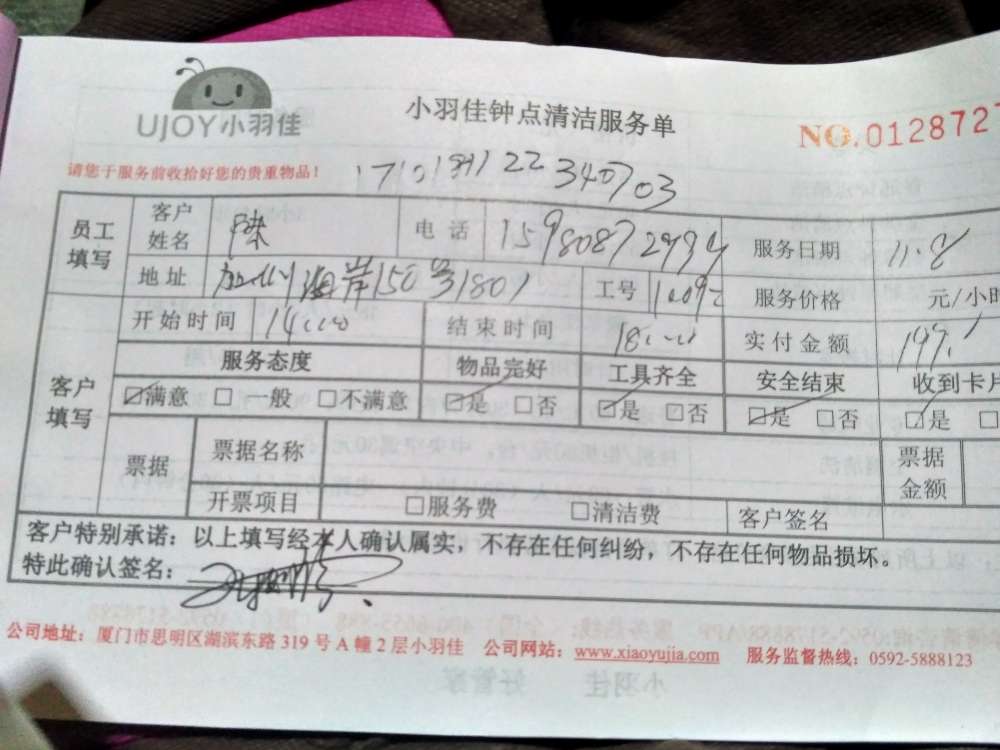 UJOY小羽佳
小羽佳钟点清洁服务单
NO.012872
请您于服务前收拾好您的贵重物品！
员工填写
客户姓名 陈 电话 15980872994 服务日期 11.8
地址 加州海岸150号1801 工号 服务价格 元/小时
开始时间 14:00 结束时间 18:00 实付金额
客户填写
服务态度 物品完好 工具齐全 安全结束 收到卡片
☑满意 □一般 □不满意 ☑是 □否 ☑是 □否 ☑是 □否 ☑是 □
票据 票据名称 票据金额
开票项目 □服务费 □清洁费 客户签名
客户特别承诺：以上填写经本人确认属实，不存在任何纠纷，不存在任何物品损坏。
特此确认签名：
公司地址：厦门市思明区湖滨东路 319 号 A 幢 2 层小羽佳 公司网站：www.xiaoyujia.com 服务监督热线：0592-5888123